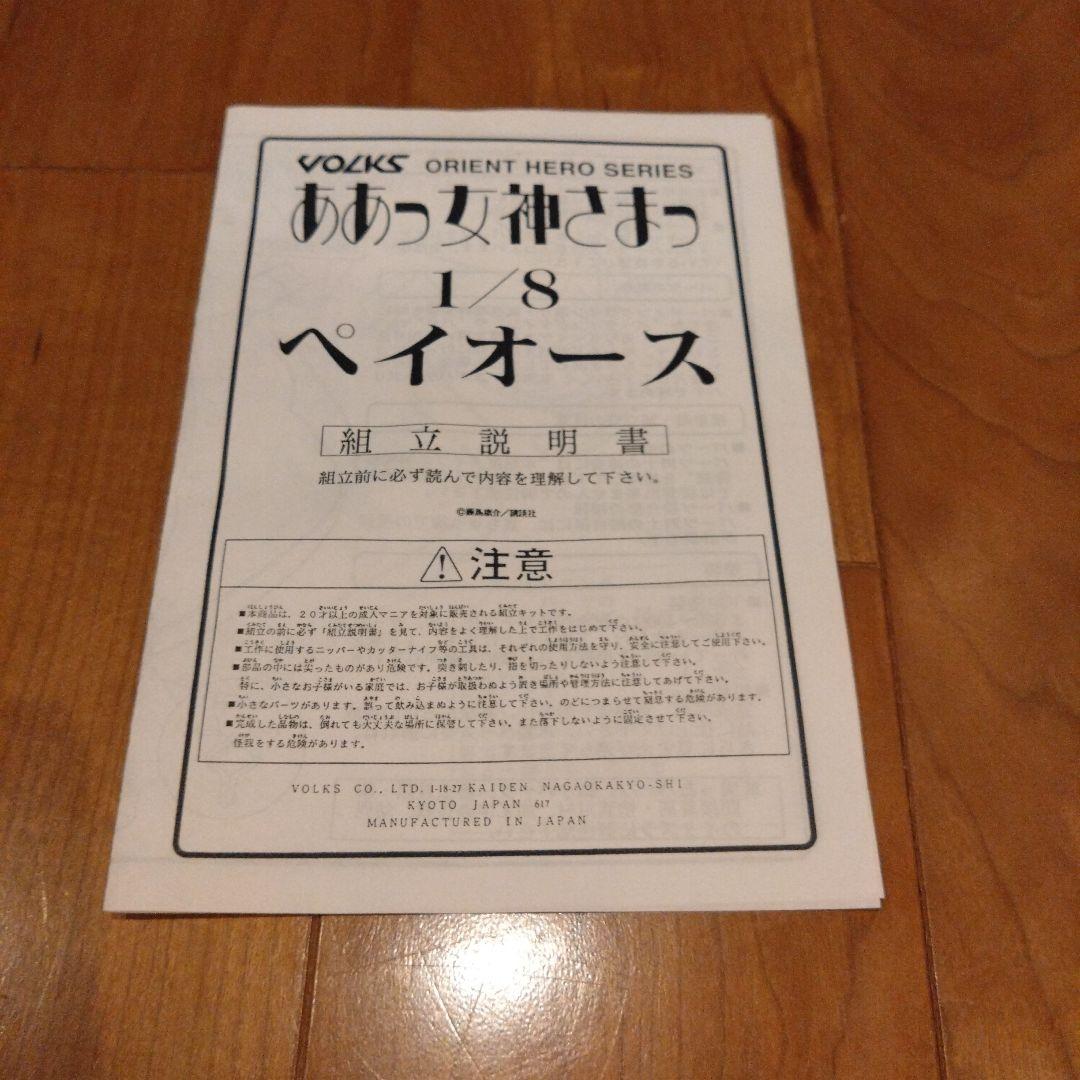 VOLKS ORIENT HERO SERIES
ああっ女神さまっ
1/8
ペイオース
組立説明書
組立前に必ず読んで内容を理解して下さい。
©藤島康介/講談社
注意
■本商品は、20才以上の成人マニアを対象に販売される組立キットです。
■組立の前に必ず「組立説明書」を見て、内容をよく理解した上で工作をはじめて下さい。
■工作に使用するニッパーやカッターナイフ等の工具は、それぞれの使用方法を守り、安全に注意してご使用下さい。
■部品の中には尖ったものがあり危険です。突き刺したり、指を切ったりしないよう注意して下さい。
特に、小さなお子様がいる家庭では、お子様が取扱わぬよう置き場所や管理方法に注意してあげて下さい。
■小さなパーツがあります。誤って飲み込まぬように注意して下さい。のどにつまらせて窒息する危険があります。
■完成した品物は、倒れても大丈夫な場所に保管して下さい。また落下しないように固定させて下さい。
怪我をする危険があります。
VOLKS CO., LTD. 1-18-27 KAIDEN NAGAOKAKYO-SHI
KYOTO JAPAN 617
MANUFACTURED IN JAPAN